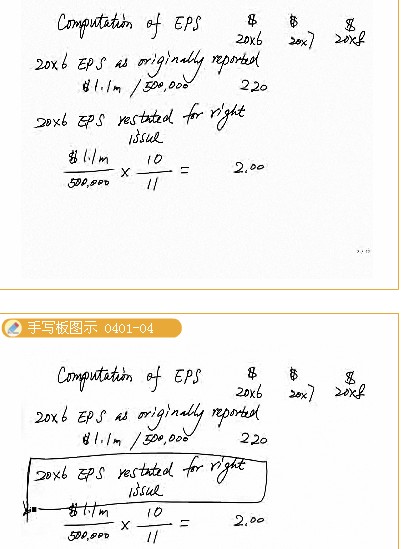 Computation of EPS $ $ $
20x6 20x7 20x8
20x6 EPS as originally reported
$1.1m / 500,000 220
20x6 EPS restated for right
issue
$1.1m 10
× =  2.00
500,000 11
手写板图示 0401-04
Computation of EPS $ $ $
20x6 20x7 20x8
20x6 EPS as originally reported
$1.1m / 500,000 220
20x6 EPS restated for right
issue
$1.1m 10
× =  2.00
500,000 11